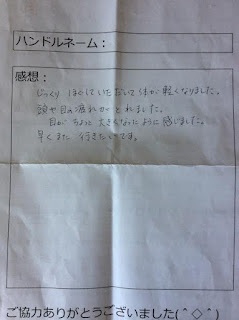 ハンドルネーム：
感想：
じっくり ほぐしていただいて体が軽くなりました。
頭や目の疲れがとれました。
目が ちょっと 大きくなったように感じました。
早くまた 行きたいです。
ご協力ありがとうございました(＾◇＾)